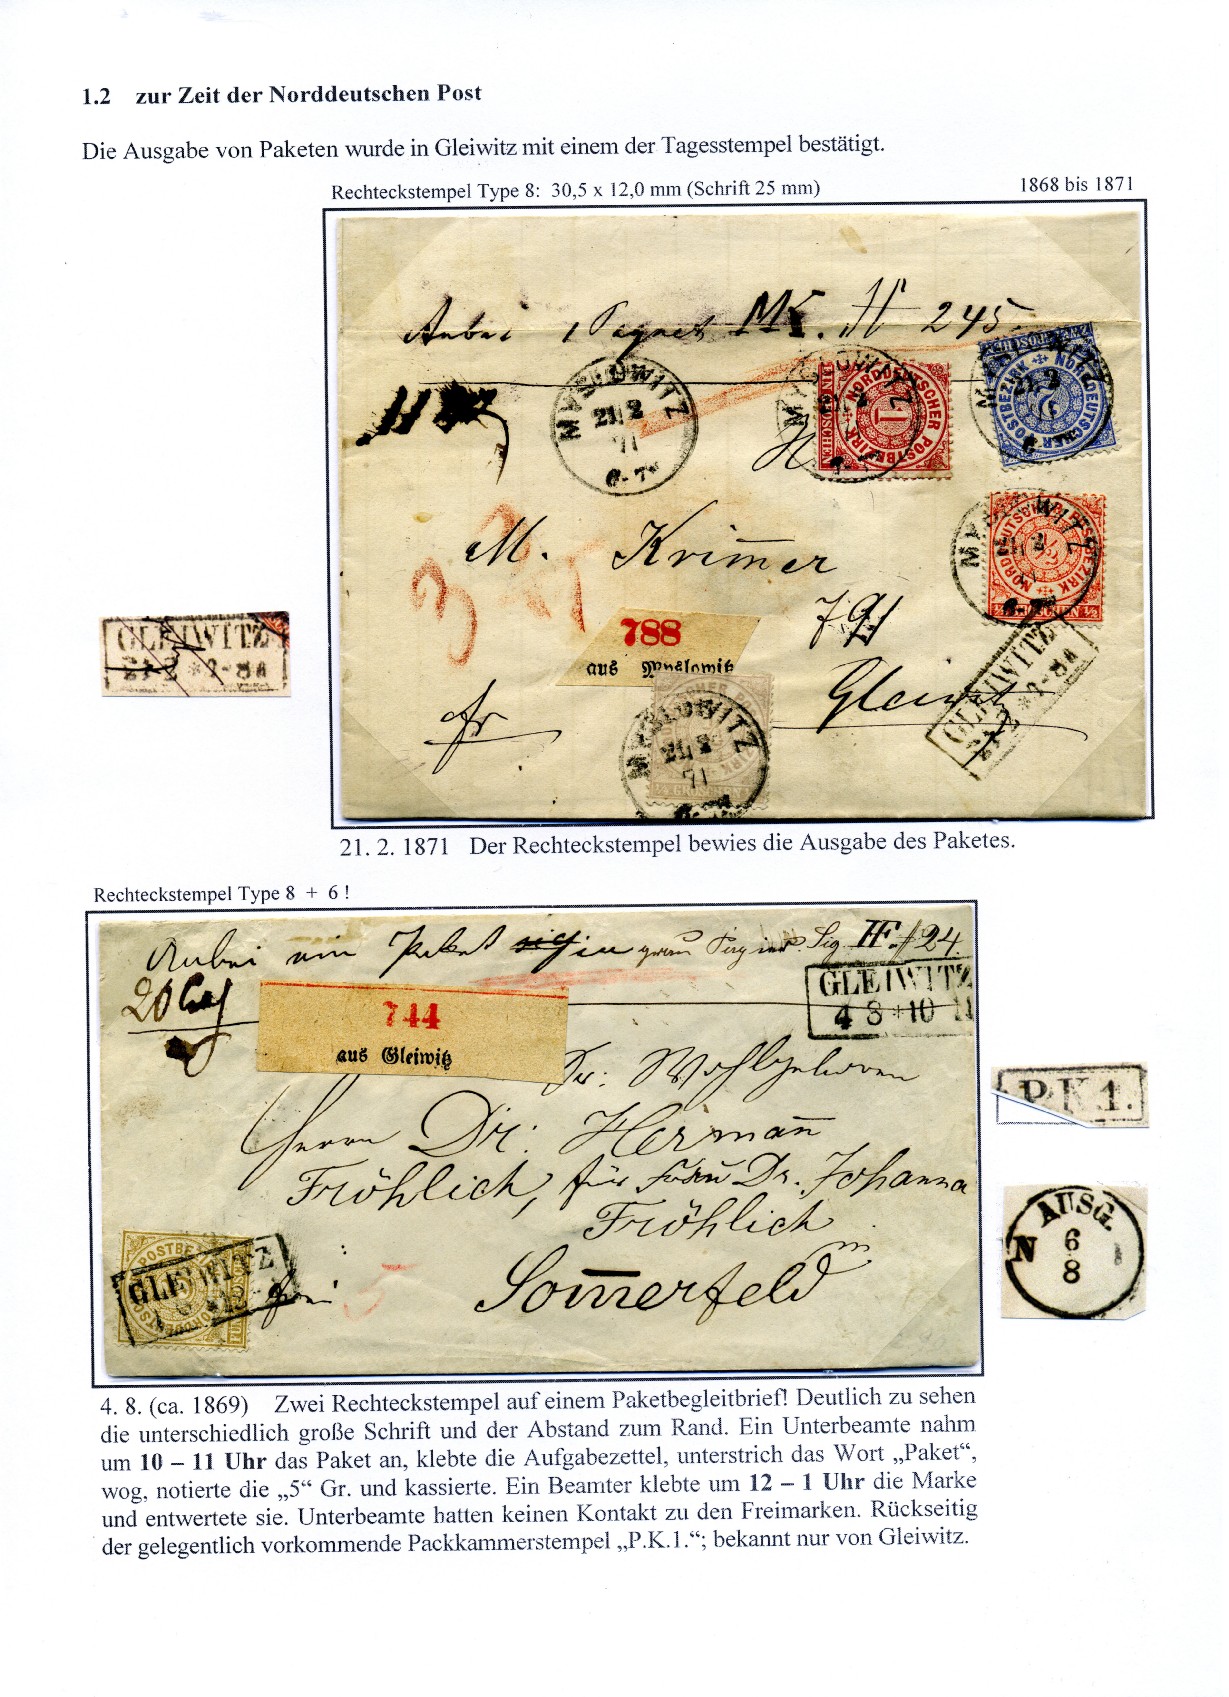 1.2 zur Zeit der Norddeutschen Post
Die Ausgabe von Paketen wurde in Gleiwitz mit einem der Tagesstempel bestätigt.
Rechteckstempel Type 8: 30,5 x 12,0 mm (Schrift 25 mm)
1868 bis 1871
Anbei 1 Paquet MK. # 245
MYSLOWITZ
21 2
71
6-7
MYSLOWITZ
NORDDEUTSCHER POSTBEZIRK
1
MYSLOWITZ
NORDDEUTSCHER POSTBEZIRK
2
M. Krimmer
MYSLOWITZ
NORDDEUTSCHER POSTBEZIRK
1/2 GROSCHEN 1/2
3
788
aus Myslowitz
Gleiwitz
GLEIWITZ
GLEIWITZ
fr
MYSLOWITZ
21 2
71
1/4 GROSCHEN
21. 2. 1871 Der Rechteckstempel bewies die Ausgabe des Paketes.
Rechteckstempel Type 8 + 6 !
Anbei ein Paket
# 24.
GLEIWITZ
4 8 * 10 11
744
aus Gleiwitz
Sr: Wohlgeboren
Herrn Dr: Hermann
Fröhlich, für Frau Dr. Johanna
Fröhlich
Sommerfeld
GLEIWITZ
5
P.K.1.
AUSG.
6
N
8
4. 8. (ca. 1869) Zwei Rechteckstempel auf einem Paketbegleitbrief! Deutlich zu sehen
die unterschiedlich große Schrift und der Abstand zum Rand. Ein Unterbeamte nahm
um 10 – 11 Uhr das Paket an, klebte die Aufgabezettel, unterstrich das Wort „Paket“,
wog, notierte die „5“ Gr. und kassierte. Ein Beamter klebte um 12 – 1 Uhr die Marke
und entwertete sie. Unterbeamte hatten keinen Kontakt zu den Freimarken. Rückseitig
der gelegentlich vorkommende Packkammerstempel „P.K.1.“; bekannt nur von Gleiwitz.